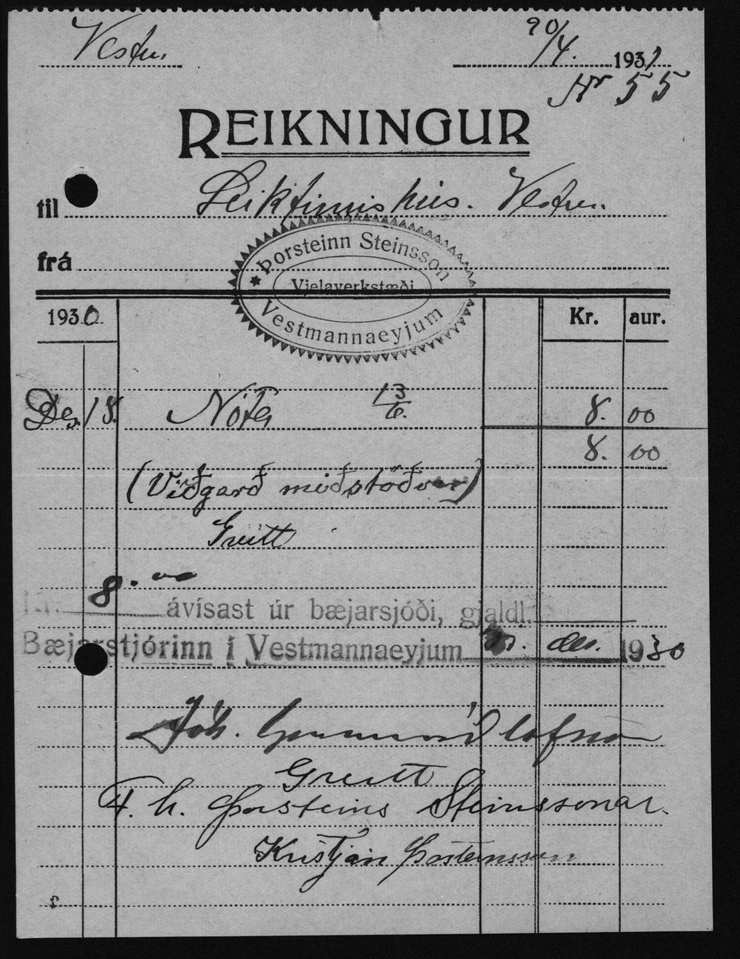 Vestm. 20/4. 1931
Nr 55
REIKNINGUR
til Leikfimishús. Vestm.
frá
★ Þorsteinn Steinsson
Vjelaverkstæði
Vestmannaeyjum
1930. Kr. aur.
Des. 18. Nóta 13/6. 8. 00
8. 00
(Viðgerð miðstöðvar)
Greitt
Kr. 8.00 ávísast úr bæjarsjóði, gjaldl.
Bæjarstjórinn í Vestmannaeyjum des. 1930
Jóh. Gunnar Ólafsson
Greitt
F. h. Þorsteins Steinssonar.
Kristján Þorsteinsson